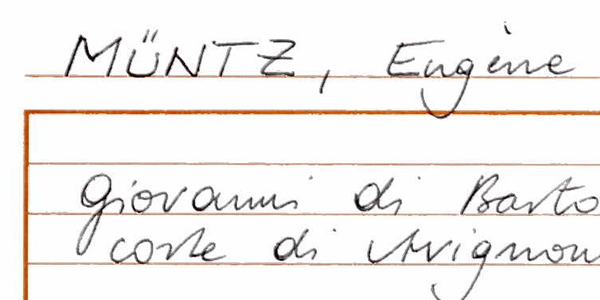 MÜNTZ, Eugène
Giovanni di Barto
corte di Avignon